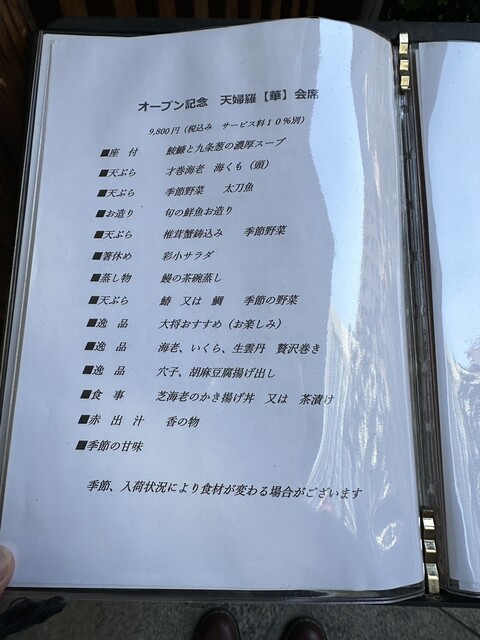 オープン記念 天婦羅【華】会席
9,800円（税込み サービス料１０％別）
■座 付 鮟鱇と九条葱の濃厚スープ
■天ぷら 才巻海老 海くも（頭）
■天ぷら 季節野菜 太刀魚
■お造り 旬の鮮魚お造り
■天ぷら 椎茸蟹鋳込み 季節野菜
■箸休め 彩小サラダ
■蒸し物 鰻の茶碗蒸し
■天ぷら 鰆 又は 鯛 季節の野菜
■逸 品 大将おすすめ（お楽しみ）
■逸 品 海老、いくら、生雲丹 贅沢巻き
■逸 品 穴子、胡麻豆腐揚げ出し
■食 事 芝海老のかき揚げ丼 又は 茶漬け
■赤 出 汁 香の物
■季節の甘味
季節、入荷状況により食材が変わる場合がございます